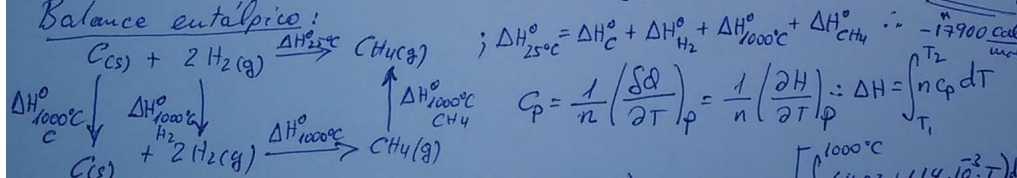 Balance entálpico:
C(s) + 2 H2(g) ΔH°25°C → CH4(g) ; ΔH°25°C = ΔH°C + ΔH°H2 + ΔH°1000°C + ΔH°CH4 ∴ -17900 cal
ΔH°1000°C C ↓ ΔH°1000°C H2 ↓ ↑ ΔH°1000°C CH4 Cp = 1/n (δQ/∂T)p = 1/n (∂H/∂T)p ∴ ΔH = ∫T1T2 n cp dT
C(s) + 2 H2(g) ΔH°1000°C → CH4(g)
1000°C